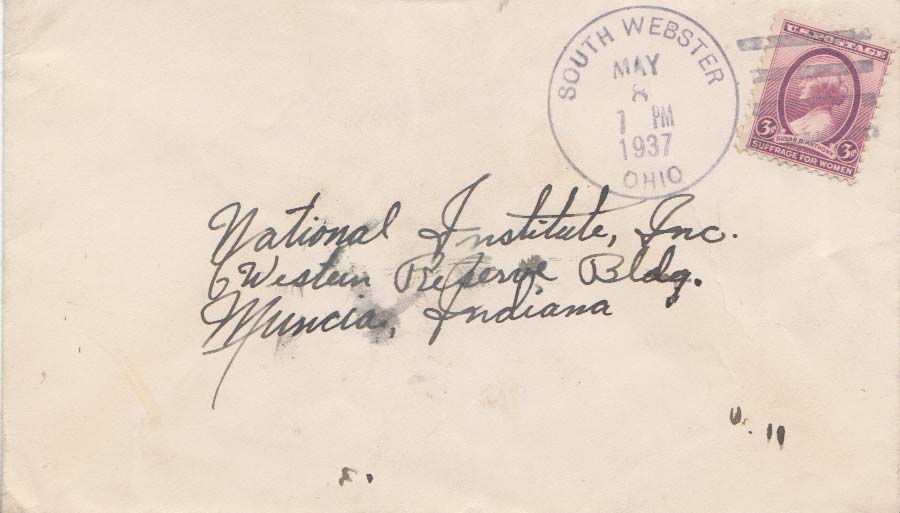 SOUTH WEBSTER
MAY
8
1 PM
1937
OHIO
U.S. POSTAGE
3¢ 3¢
SUSAN B. ANTHONY
SUFFRAGE FOR WOMEN
National Institute, Inc.
6 Western Reserve Bldg.
Muncia, Indiana